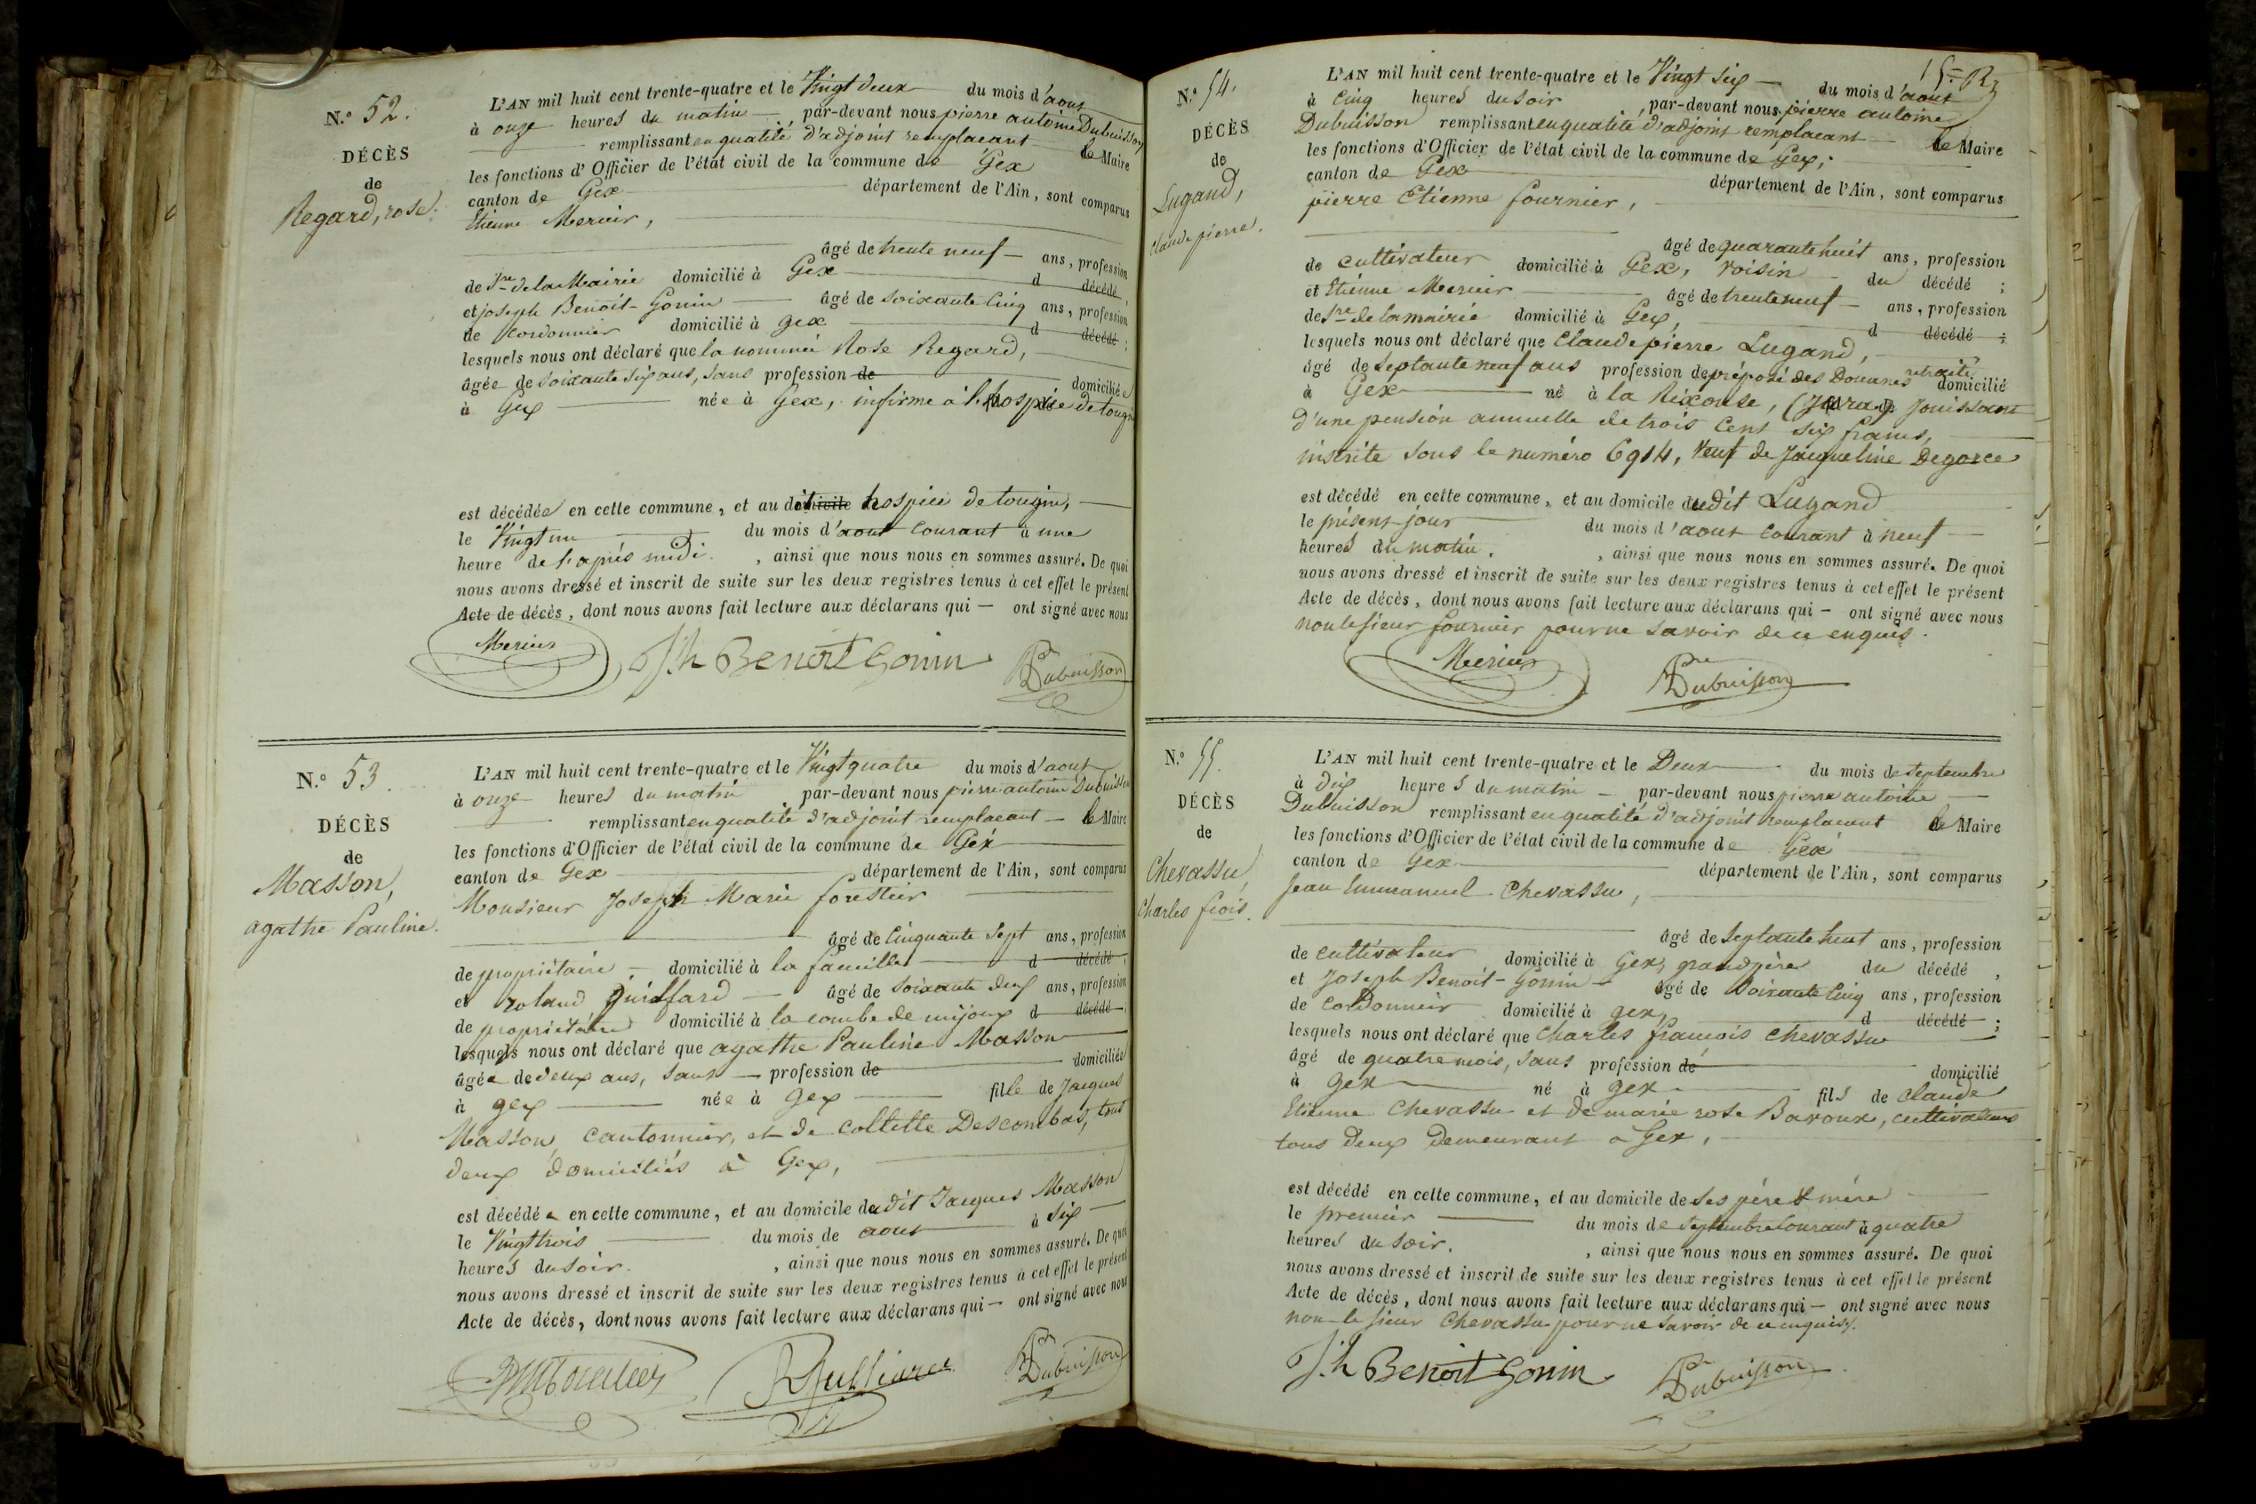 N.º 52.
DÉCÈS
de
Regard, rose.
L'AN mil huit cent trente-quatre et le Vingt deux du mois d'aout
à onze heures du matin, par-devant nous pierre antoine Dubuisson
remplissant en qualité d'adjoint remplacant le Maire
les fonctions d'Officier de l'état civil de la commune de Gex
canton de Gex département de l'Ain, sont comparus
Etienne Mercier,
âgé de trente neuf ans, profession
de Sre de la Mairie domicilié à Gex d décédé,
et joseph Benoit-Gonin âgé de soixante cinq ans, profession
de cordonnier domicilié à gex d décédé ;
lesquels nous ont déclaré que la nommée Rose Regard,
âgée de soixante six ans, sans profession de domiciliée
à Gex née à Gex, infirme à l'hospice de tougin
est décédée en cette commune, et au dit hospice de tougin,
le Vingt un du mois d'aout courant à une
heure de l'après midi, ainsi que nous nous en sommes assuré. De quoi
nous avons dressé et inscrit de suite sur les deux registres tenus à cet effet le présent
Acte de décès, dont nous avons fait lecture aux déclarans qui — ont signé avec nous
Mercier Jh Benoit Gonin Dubuisson
N.º 53
DÉCÈS
de
Masson,
agathe Pauline.
L'AN mil huit cent trente-quatre et le Vingt quatre du mois d'aout
à onze heures du matin par-devant nous pierre antoine Dubuisson
remplissant en qualité d'adjoint remplacant le Maire
les fonctions d'Officier de l'état civil de la commune de Gex
canton de Gex département de l'Ain, sont comparus
Monsieur Joseph Marie forestier
âgé de Cinquante Sept ans, profession
de propriétaire domicilié à la faucille d décédé,
et roland Juilfard âgé de soixante deux ans, profession
de propriétaire domicilié à la combe de mijoux d décédé
lesquels nous ont déclaré que agathe Pauline Masson
âgée de deux ans, sans profession de domiciliée
à gex née à gex fille de Jacques
Masson, cantonnier, et de Collette Descombas, tous
deux domiciliés à Gex,
est décédée en cette commune, et au domicile du dit Jacques Masson
le Vingt trois du mois de aout à six
heures du soir, ainsi que nous nous en sommes assuré. De quoi
nous avons dressé et inscrit de suite sur les deux registres tenus à cet effet le présent
Acte de décès, dont nous avons fait lecture aux déclarans qui — ont signé avec nous
Dubuisson
15.e R
N.º 54.
DÉCÈS
de
Lugand,
Claude pierre.
L'AN mil huit cent trente-quatre et le Vingt six du mois d'aout
à cinq heures du soir, par-devant nous pierre antoine
Dubuisson remplissant en qualité d'adjoint remplacant le Maire
les fonctions d'Officier de l'état civil de la commune de Gex,
canton de Gex département de l'Ain, sont comparus
pierre Etienne fournier,
âgé de quarante huit ans, profession
de cultivateur domicilié à Gex, voisin du décédé ;
et Etienne Mercier âgé de trente neuf ans, profession
de Sre de la mairie domicilié à Gex, d décédé ;
lesquels nous ont déclaré que Claude pierre Lugand,
âgé de septante neuf ans profession de préposé des Douanes retraité domicilié
à Gex né à la Rixouse, (Jura) Jouissant
d'une pension annuelle de trois Cent six francs,
inscrite sous le numéro 6914, Veuf de Jacqueline Degorce
est décédé en cette commune, et au domicile du dit Lugand
le présent jour du mois d'aout courant à neuf
heures du matin, ainsi que nous nous en sommes assuré. De quoi
nous avons dressé et inscrit de suite sur les deux registres tenus à cet effet le présent
Acte de décès, dont nous avons fait lecture aux déclarans qui — ont signé avec nous
non le sieur fournier pour ne savoir de ce enquis.
Mercier Dubuisson
N.º 55.
DÉCÈS
de
Chevassu,
Charles fçois.
L'AN mil huit cent trente-quatre et le Deux du mois de septembre
à dix heures du matin par-devant nous pierre antoine
Dubuisson remplissant en qualité d'adjoint remplacant le Maire
les fonctions d'Officier de l'état civil de la commune de Gex
canton de Gex département de l'Ain, sont comparus
Jean Emmanuel Chevassu,
âgé de septante huit ans, profession
de cultivateur domicilié à Gex, grandpère du décédé,
et Joseph Benoit-Gonin âgé de soixante cinq ans, profession
de cordonnier domicilié à gex, d décédé ;
lesquels nous ont déclaré que Charles francois Chevassu
âgé de quatre mois, sans profession de domicilié
à gex né à gex fils de Claude
Etienne Chevassu et de marie rose Baroux, cultivateurs
tous deux demeurant à Gex,
est décédé en cette commune, et au domicile de ses père & mère
le premier du mois de septembre courant à quatre
heures du soir, ainsi que nous nous en sommes assuré. De quoi
nous avons dressé et inscrit de suite sur les deux registres tenus à cet effet le présent
Acte de décès, dont nous avons fait lecture aux déclarans qui — ont signé avec nous
non le sieur Chevassu pour ne savoir de ce enquis.
Jh Benoit Gonin Dubuisson